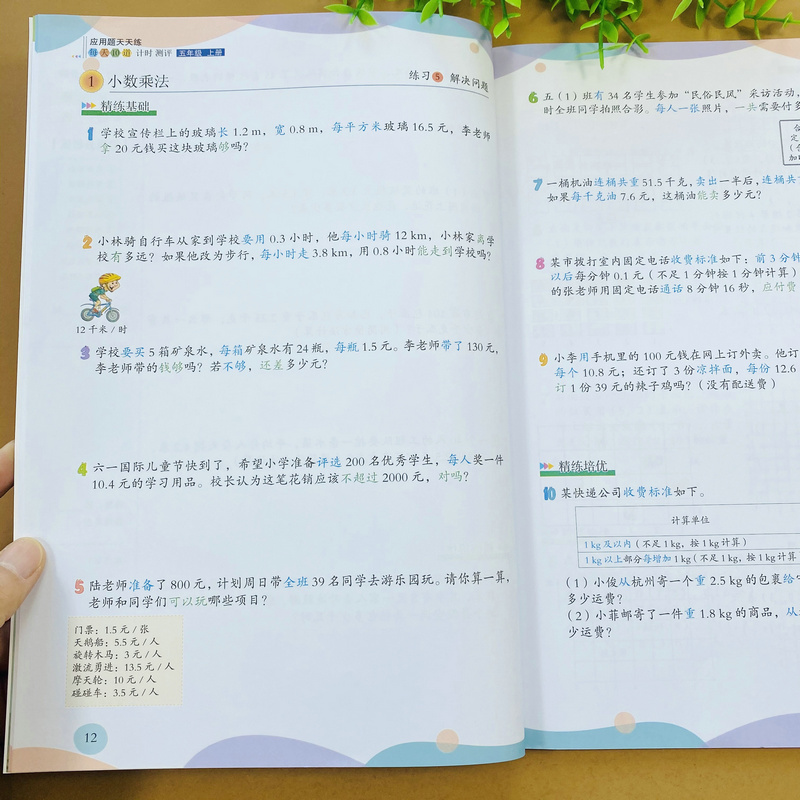 应用题天天练
每天10道 计时 测评 五年级 上册
1 小数乘法
练习5 解决问题
精练基础
1 学校宣传栏上的玻璃长 1.2 m，宽 0.8 m，每平方米玻璃 16.5 元，李老师
拿 20 元钱买这块玻璃够吗？
2 小林骑自行车从家到学校要用 0.3 小时，他每小时骑 12 km，小林家离学
校有多远？如果他改为步行，每小时走 3.8 km，用 0.8 小时能走到学校吗？
12 千米 / 时
3 学校要买 5 箱矿泉水，每箱矿泉水有 24 瓶，每瓶 1.5 元。李老师带了 130 元，
李老师带的钱够吗？若不够，还差多少元？
4 六一国际儿童节快到了，希望小学准备评选 200 名优秀学生，每人奖一件
10.4 元的学习用品。校长认为这笔花销应该不超过 2000 元，对吗？
5 陆老师准备了 800 元，计划周日带全班 39 名同学去游乐园玩。请你算一算，
老师和同学们可以玩哪些项目？
门票：1.5 元 / 张
天鹅船：5.5 元 / 人
旋转木马：3 元 / 人
激流勇进：13.5 元 / 人
摩天轮：10 元 / 人
碰碰车：3.5 元 / 人
12
6 五（1）班有 34 名学生参加“民俗民风”采访活动，
时全班同学拍照合影。每人一张照片，一共需要付多
合
定
（合
加
7 一桶机油连桶共重 51.5 千克，卖出一半后，连桶共
如果每千克油 7.6 元，这桶油能卖多少元？
8 某市拨打室内固定电话收费标准如下：前 3 分钟
以后每分钟 0.1 元（不足 1 分钟按 1 分钟计算）
的张老师用固定电话通话 8 分钟 16 秒，应付费
9 小李用手机里的 100 元钱在网上订外卖。他订
每个 10.8 元；还订了 3 份凉拌面，每份 12.6
订 1 份 39 元的辣子鸡吗？（没有配送费）
精练培优
10 某快递公司收费标准如下。
计算单位
1 kg 及以内（不足 1 kg，按 1 kg 计算）
1 kg 以上部分每增加 1 kg（不足 1 kg，按 1 kg 计算
（1）小俊从杭州寄一个重 2.5 kg 的包裹给
多少运费？
（2）小菲邮寄了一件重 1.8 kg 的商品，从
少运费？